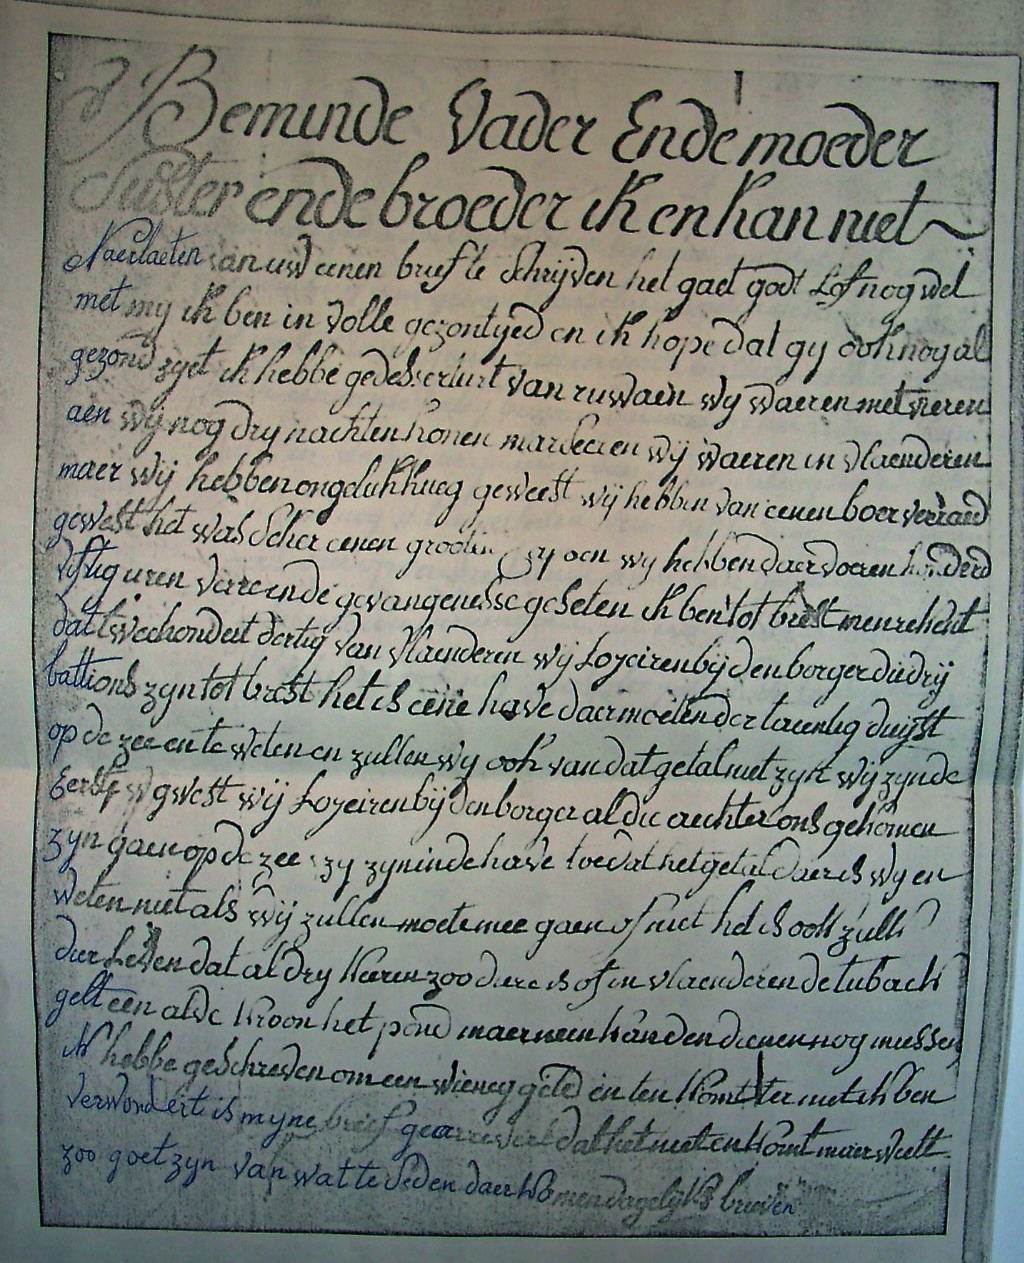 Beminde Vader Ende moeder
Suster ende broeder ik en kan niet
Naerlaeten van uw eenen brief te schrijven het gaet godt Lof nog wel
met my ik ben in volle gezontyed en ik hope dat gy ook nog al
gezond zyet ik hebbe gedesserturt van ruwaen wy waeren met vieren
aen wij nog dry nachten konen mardeeren wij waeren in vlaenderen
maer wij hebben ongelukkueg geweest wij hebben van eenen boer verraed
gewest het was seker eenen grooten wy hebben daer voeren honderd
viftig uren verre ende gevangenesse geseten ik ben tot brest men rekent
dat tweehondert dertig van vlaenderen wij Lozeiren bij den borger die drij
battions zyn tot brest het is eene have daer moeten der twentig duijst
op de zee en te weten en zullen wy ook van dat getal niet zyn wij zyn de
Eerste gwest wij Lozeiren bij den borger al die aechter ons gekomen
zyn gaen op de zee zy zyn in de have toe dat het getal daer is wy en
weten niet als wij zullen moete mee gaen of niet het is ook zulk
dier Leven dat al dry keeren zoo diere is of in vlaenderen de tuback
gelt een alve kroon het pond maer men kan den dienen nog missen
ik hebbe geschreven om een wieneg geld en ten komt ter niet ik ben
verwondert is myne brief gearreveert dat het niet en komt maer wilt
zoo goet zyn van wat te seden daer komen dagelijks brieven